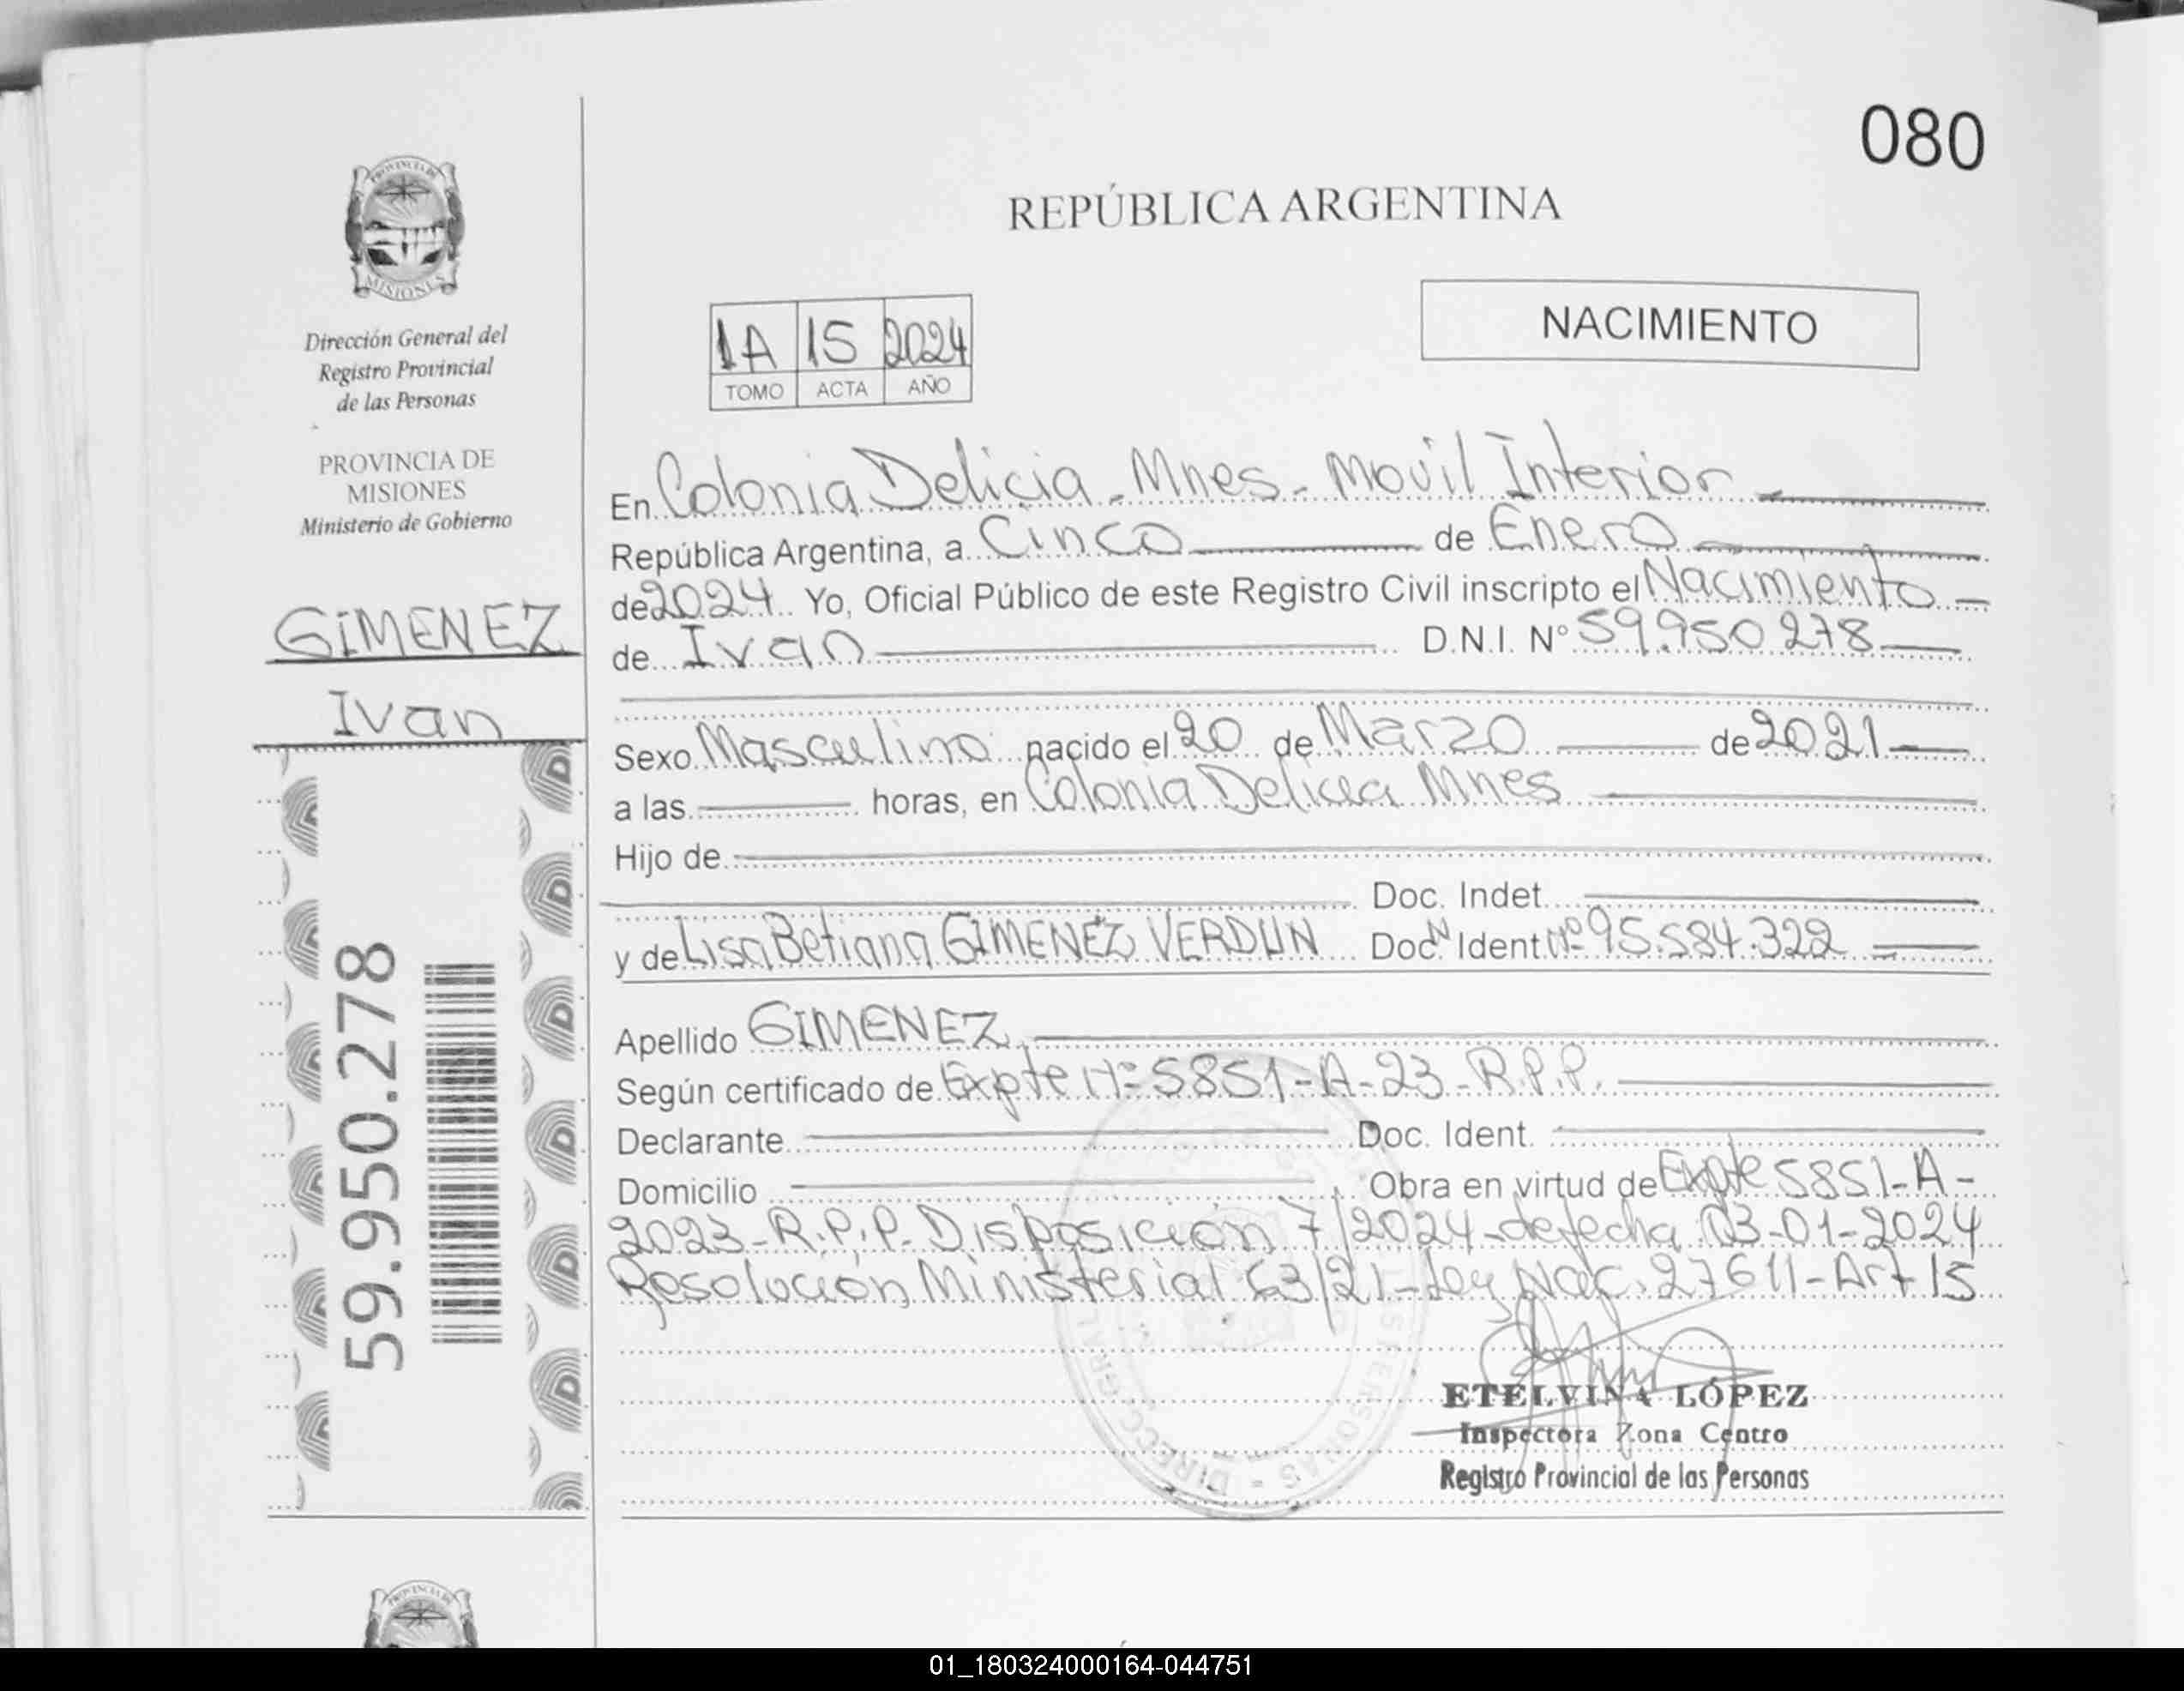 080
REPÚBLICA ARGENTINA
NACIMIENTO
1A 15 2024
TOMO ACTA AÑO
PROVINCIA DE
MISIONES
Dirección General del
Registro Provincial
de las Personas
PROVINCIA DE
MISIONES
Ministerio de Gobierno
GIMENEZ
Ivan
59.950.278
En Colonia Delicia - Mnes - Movil Interior
República Argentina, a Cinco de Enero
de 2024. Yo, Oficial Público de este Registro Civil inscripto el Nacimiento
de Ivan D.N.I. N° 59.950 278
Sexo Masculino nacido el 20 de Marzo de 2021
a las horas, en Colonia Delicia Mnes
Hijo de
Doc. Indet.
y de Lisa Betiana GIMENEZ VERDUN Doc. N Ident Nº 95.584.322
Apellido GIMENEZ
Según certificado de Expte Nº 5851-A-23-R.P.P.
Declarante Doc. Ident.
Domicilio Obra en virtud de Expte 5851-A-
2023-R.P.P. Disposición 7/2024 de fecha 03-01-2024
Resolución Ministerial 63/21-Ley Nac. 27611-Art 15
ETELVINA LÓPEZ
Inspectora Zona Centro
Registro Provincial de las Personas
01_180324000164-044751